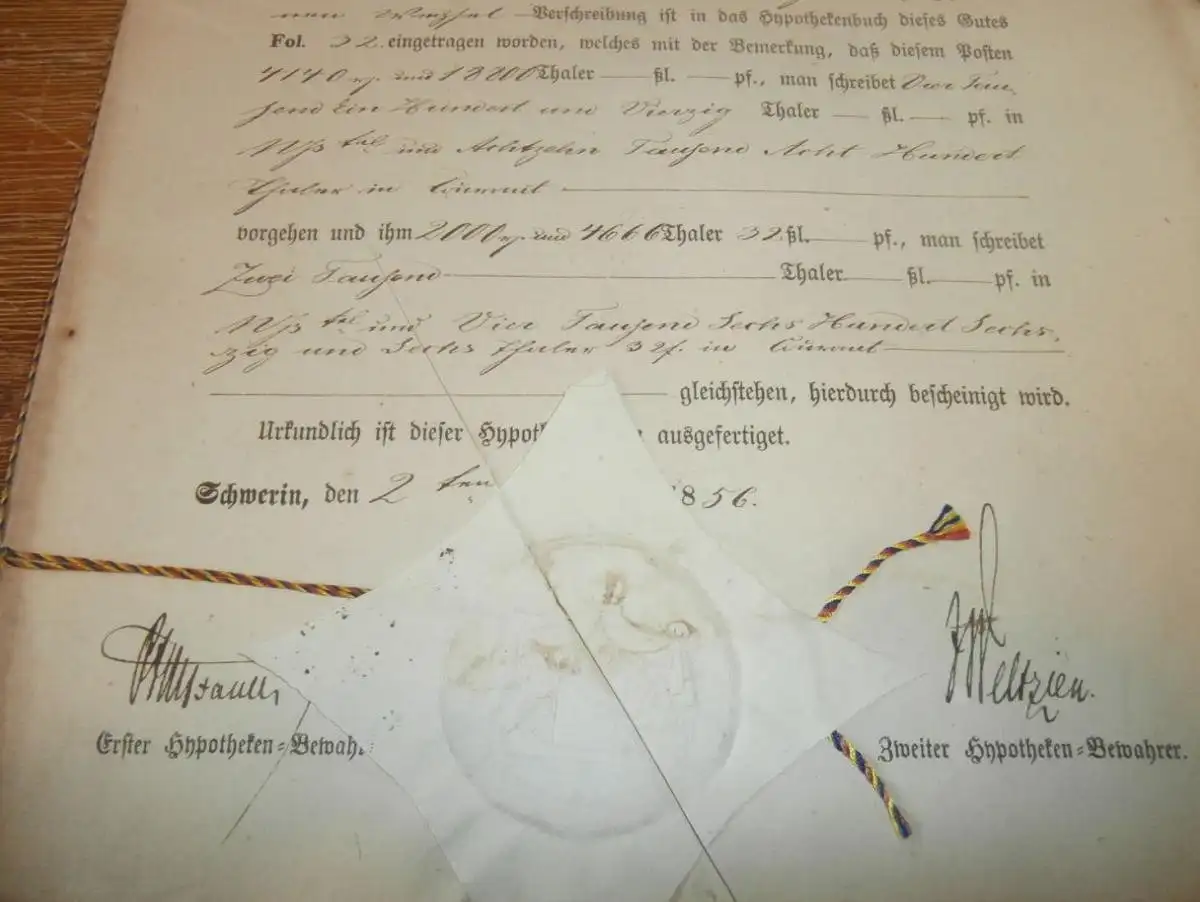 nen Wechsel-Verschreibung ist in das Hypothekenbuch dieses Gutes
Fol. 32. eingetragen worden, welches mit der Bemerkung, daß diesem Posten
4140 und 18800 Thaler — ßl. — pf., man schreibet Vier Tau-
send Ein Hundert und Vierzig Thaler — ßl. — pf. in
und Achtzehn Tausend Acht Hundert
Thaler in Courant
vorgehen und ihm 2000 und 4666 Thaler 32 ßl. — pf., man schreibet
Zwei Tausend — Thaler — ßl. — pf. in
und Vier Tausend Sechs Hundert Sechs-
zig und Sechs Thaler 32 ß. in Courant
gleichstehen, hierdurch bescheinigt wird.
Urkundlich ist dieser Hypoth ausgefertiget.
Schwerin, den 2 ten 856.
Weltzien.
Erster Hypotheken-Bewah
Zweiter Hypotheken-Bewahrer.